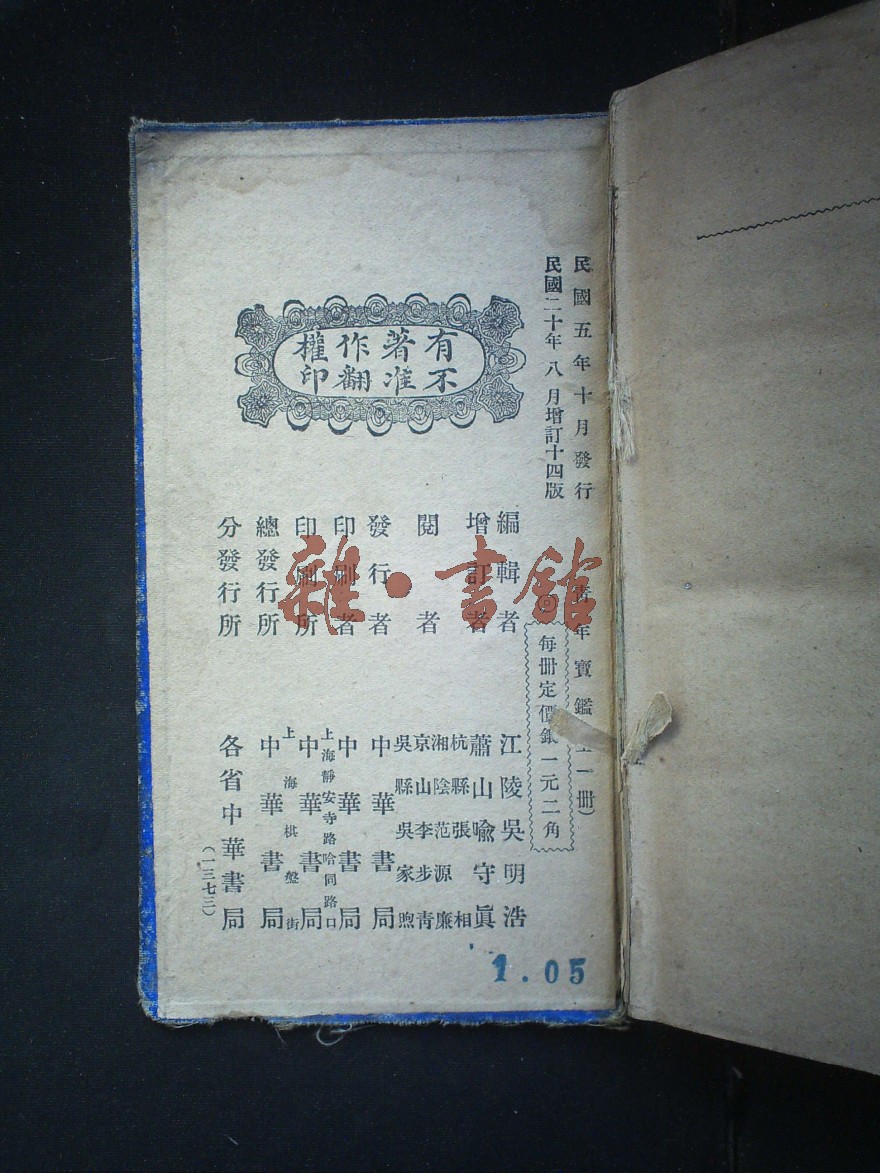 民國五年十月發行
民國二十年八月增訂十四版
青年寶鑑全一冊）
每冊定價銀一元二角
有著作權
不准翻印
編輯者 江陵吳明浩
增訂者 蕭山喩守眞
閱者 杭縣張相
湘陰范源廉
京山李步青
吳縣吳家煦
發行者 中華書局
印刷者 中華書局
印刷所 上海靜安寺路哈同路口
中華書局
總發行所 上海棋盤街
中華書局
分發行所 各省中華書局
（一三七三）
1.05
雜·書館